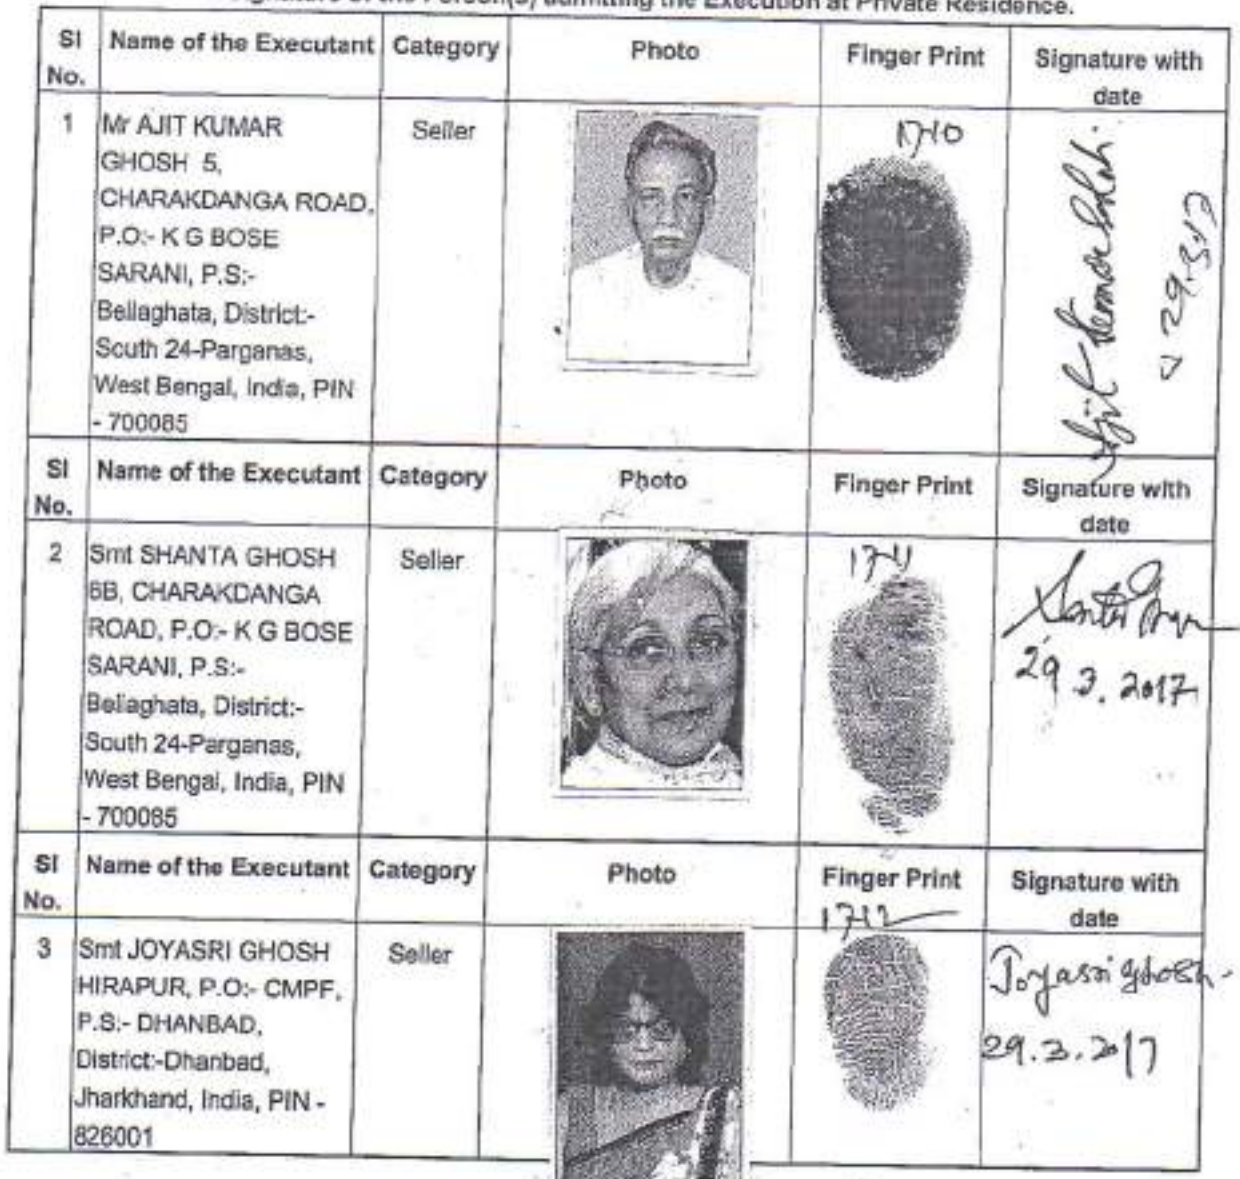 Signature of the Person(s) admitting the Execution at Private Residence.
Sl No. Name of the Executant Category Photo Finger Print Signature with date
1 Mr AJIT KUMAR Seller
GHOSH 5,
CHARAKDANGA ROAD,
P.O:- K G BOSE
SARANI, P.S:-
Beliaghata, District:-
South 24-Parganas,
West Bengal, India, PIN
- 700085
1710
Ajit Kumar Ghosh.
29.3.17
Sl No. Name of the Executant Category Photo Finger Print Signature with date
2 Smt SHANTA GHOSH Seller
6B, CHARAKDANGA
ROAD, P.O:- K G BOSE
SARANI, P.S:-
Beliaghata, District:-
South 24-Parganas,
West Bengal, India, PIN
- 700085
1711
29.3.2017
Sl No. Name of the Executant Category Photo Finger Print Signature with date
1712
3 Smt JOYASRI GHOSH Seller
HIRAPUR, P.O:- CMPF,
P.S:- DHANBAD,
District:-Dhanbad,
Jharkhand, India, PIN -
826001
Joyasri Ghosh
29.3.2017